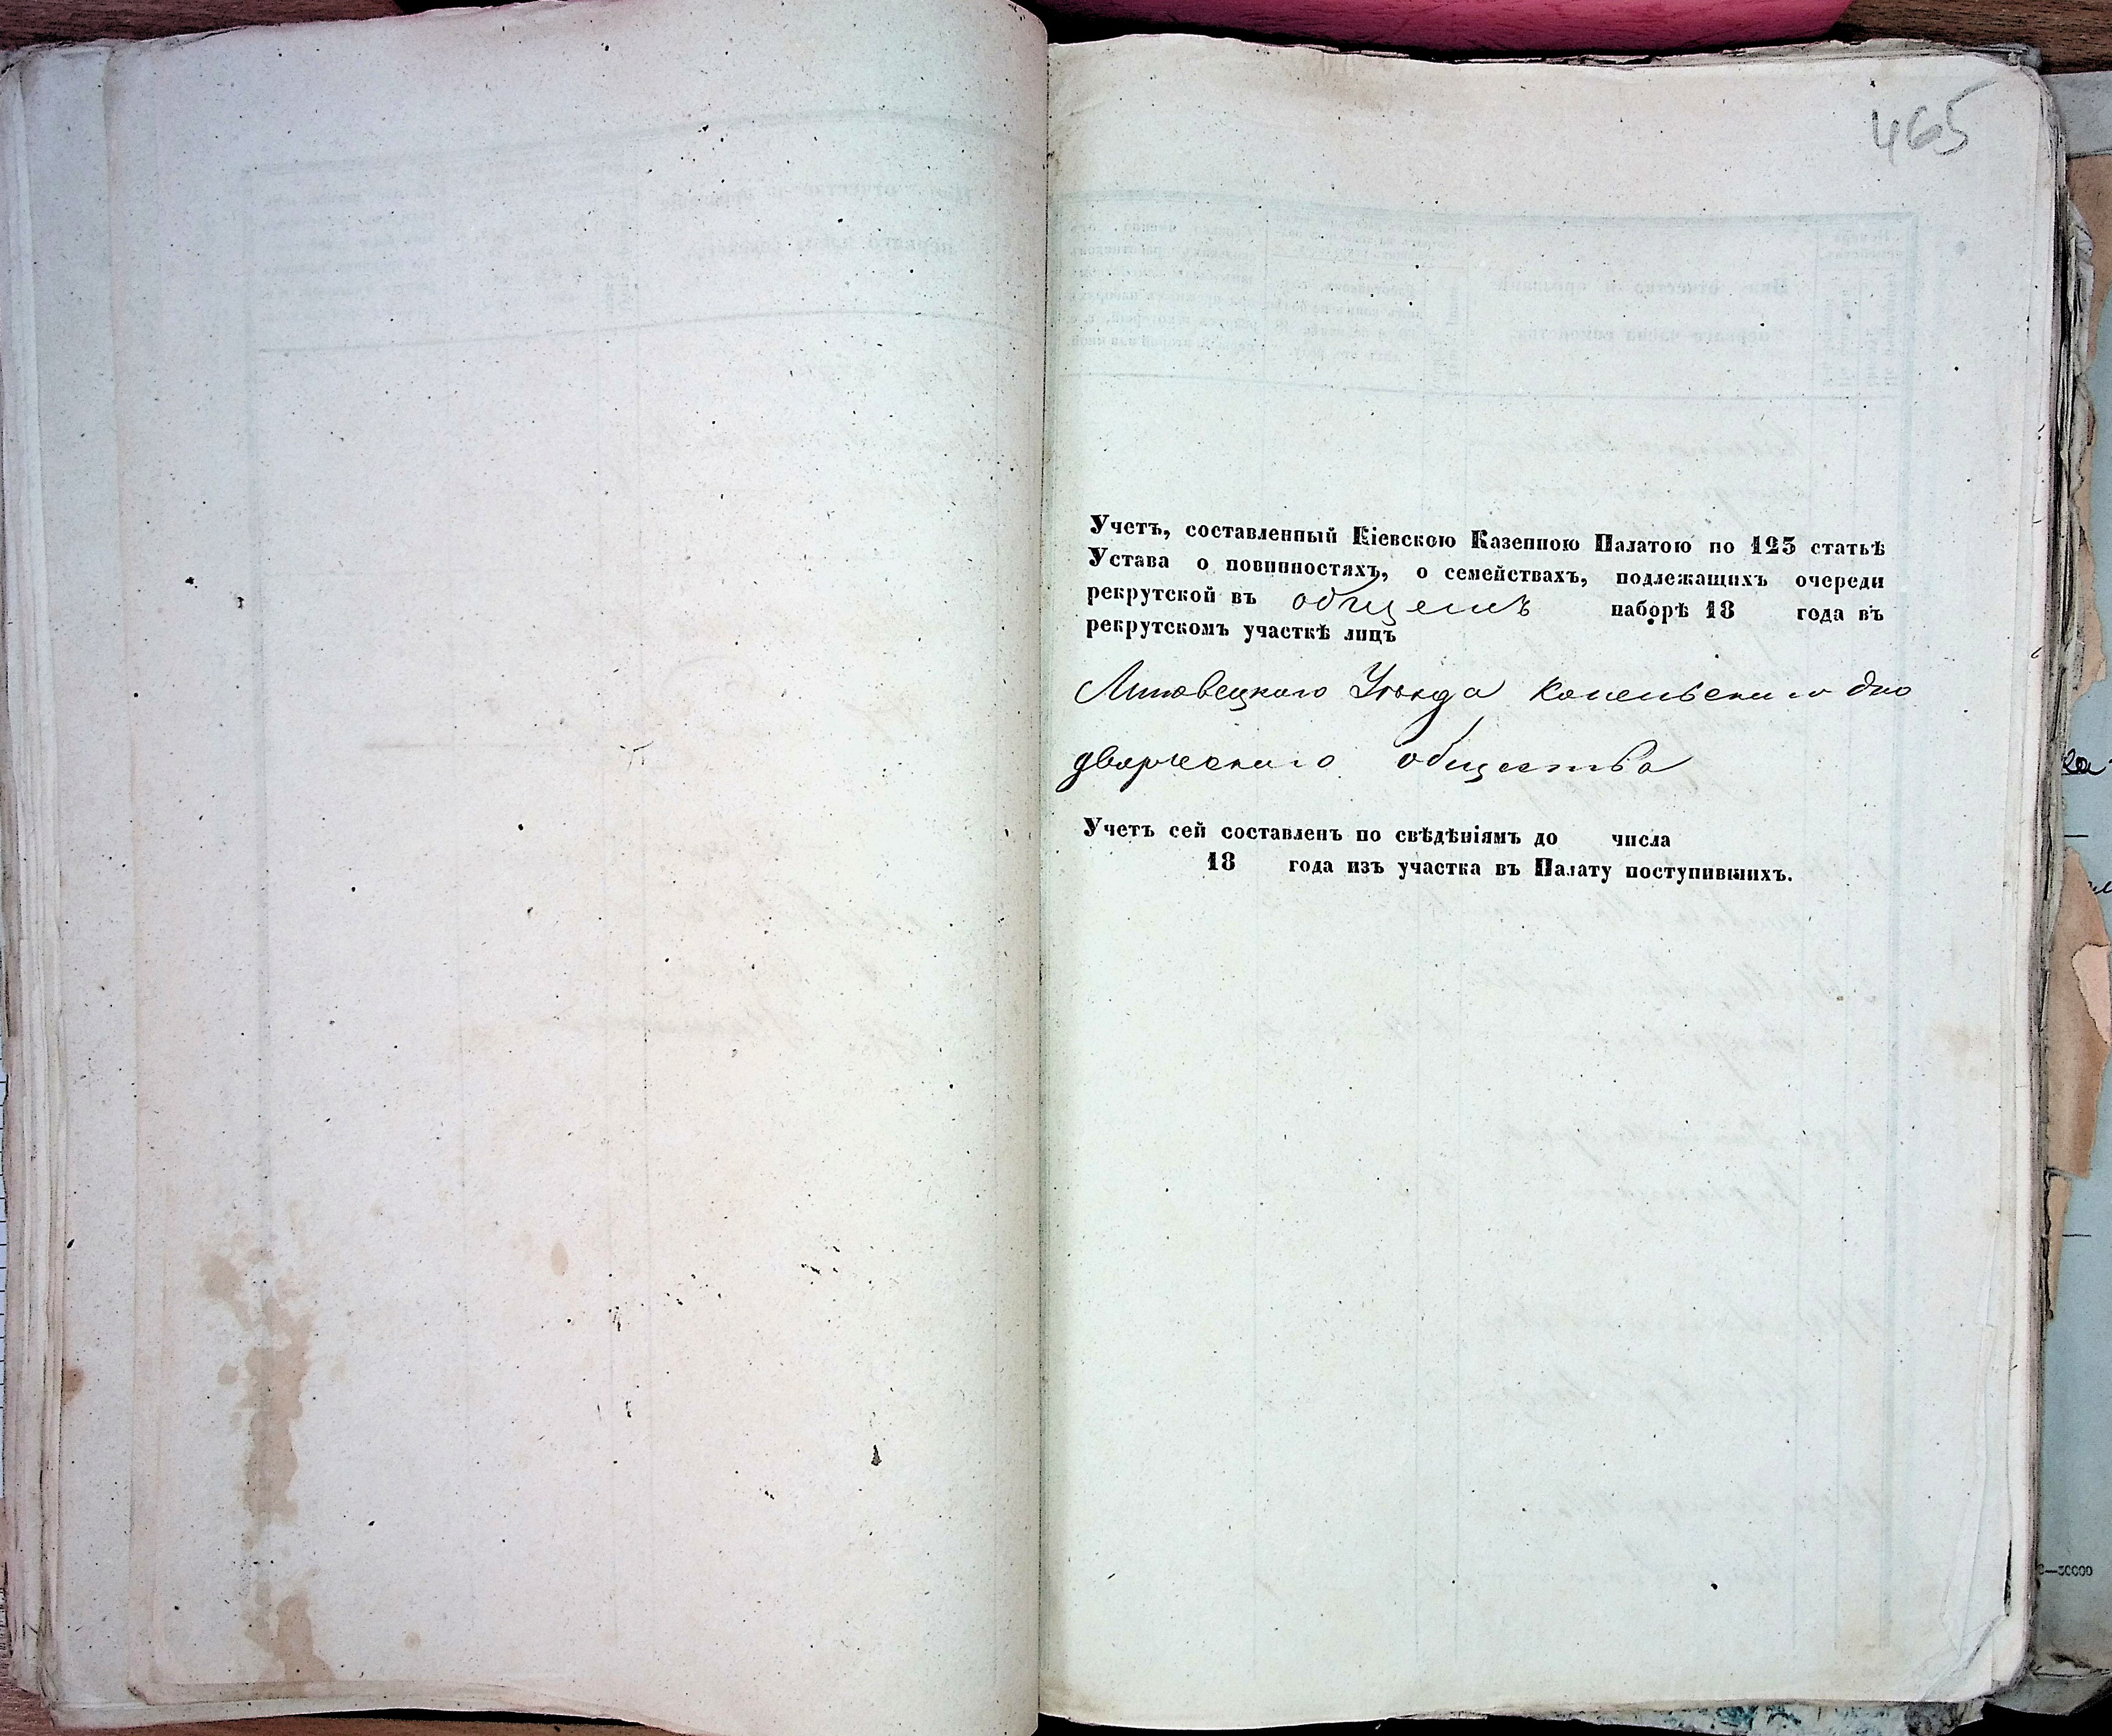 465
Учетъ, составленный Кіевскою Казенною Палатою по 123 статьѣ
Устава о повинностяхъ, о семействахъ, подлежащихъ очереди
рекрутской въ общемъ наборѣ 18 года въ
рекрутскомъ участкѣ лицъ
Липовецкаго Уѣзда одно
дворческаго общества
Учетъ сей составленъ по свѣдѣніямъ до числа
18 года изъ участка въ Палату поступившихъ.